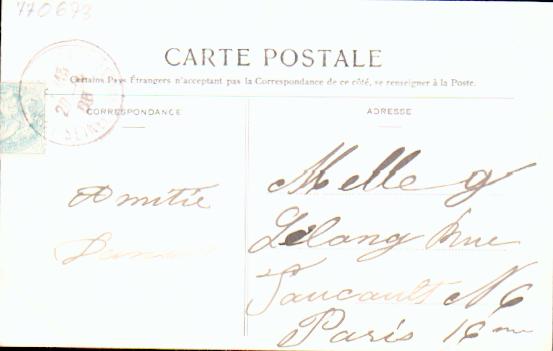 770673
CARTE POSTALE
Certains Pays Étrangers n'acceptant pas la Correspondance de ce côté, se renseigner à la Poste.
CORRESPONDANCE
ADRESSE
Amitié
Melle G
Lelong Rue
Faucault N 6
Paris 16eme